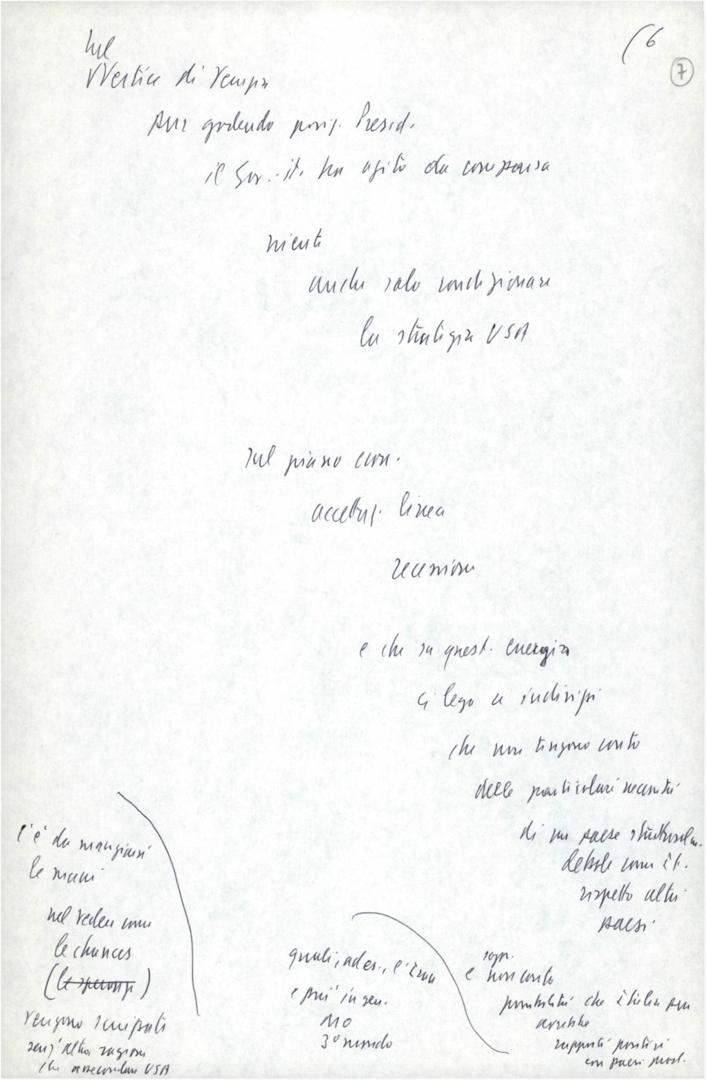 (6
7
Nel
Vertice di Venezia
pur godendo posiz. Presid.
il Gov. it. ha agito da comparsa
niente
anche solo condizionare
la strategia USA
sul piano econ.
accettaz. linea
recessione
e che su quest. energia
ci lega a indirizzi
che non tengono conto
delle particolari necessità
di un paese struttural.
debole come It.
rispetto altri
paesi
c'è da mangiarsi
le mani
nel vedere come
le chances
(le speranze)
vengono sciupate
senz'altra ragione
che assecondare USA
quali, ades., l'Iran
e più in gen.
MO
3° mondo
e non conto
possibilità che Italia
avrebbe
rapporti positivi
con paesi prod.